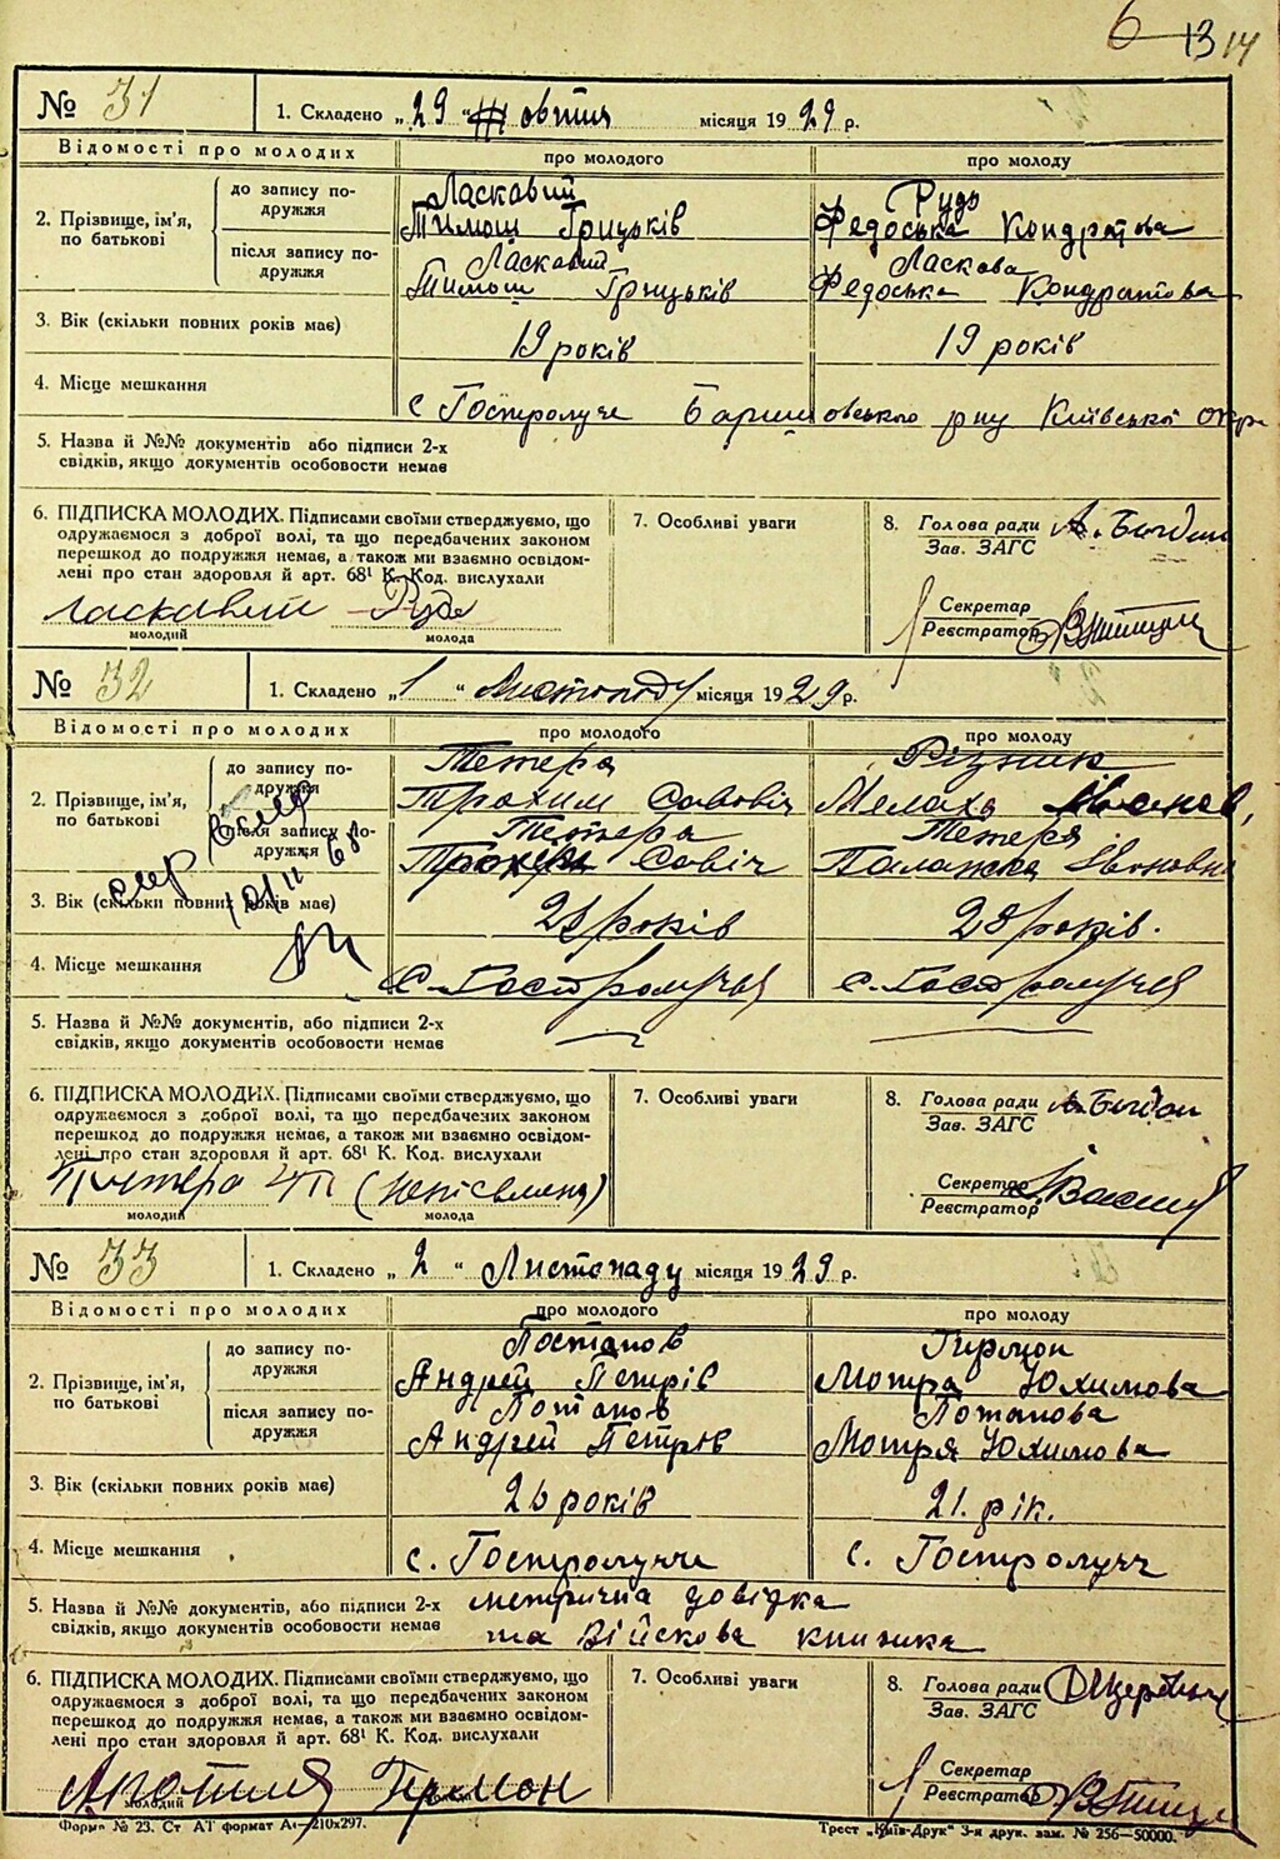 6 13 14
№ 31
1. Складено „29“ Жовтня місяця 1929 р.
Відомості про молодих
про молодого
про молоду
2. Прізвище, ім’я, по батькові
до запису подружжя
Ласкавий
Тимош Грицьків
Руда
Федоська Кондратова
після запису подружжя
Ласкавий
Тимош Грицьків
Ласкова
Федоська Кондратова
3. Вік (скільки повних років має)
19 років
19 років
4. Місце мешкання
с Гостролуче Баришовського рну Київської окр
5. Назва й №№ документів або підписи 2-х
свідків, якщо документів особовости немає
6. ПІДПИСКА МОЛОДИХ. Підписами своїми стверджуємо, що
одружаємося з доброї волі, та що передбачених законом
перешкод до подружжя немає, а також ми взаємно освідом-
лені про стан здоров̈я й арт. 68¹ К. Код. вислухали
Ласкавий Руда
молодий
молода
7. Особливі уваги
8. Голова ради А. Богдан
Зав. ЗАГС
Секретар
Реєстратор
№ 32
1. Складено „1“ Листопаду місяця 1929 р.
Відомості про молодих
про молодого
про молоду
2. Прізвище, ім’я, по батькові
до запису подружжя
Тетера
Трохим Савовіч
Різник
Мелаха Іванов,
після запису подружжя
Тетера
Трохим Савіч
Тетеря
Палажка Івановна
смер
68
3. Вік (скільки повних років має)
28 років
28 років.
4. Місце мешкання
с. Гостролуччя
с. Гостролуччя
5. Назва й №№ документів, або підписи 2-х
свідків, якщо документів особовости немає
6. ПІДПИСКА МОЛОДИХ. Підписами своїми стверджуємо, що
одружаємося з доброї волі, та що передбачених законом
перешкод до подружжя немає, а також ми взаємно освідом-
лені про стан здоровя й арт. 68¹ К. Код. вислухали
(непісьменна)
молодий
молода
7. Особливі уваги
8. Голова ради А. Богдан
Зав. ЗАГС
Секретар
Реєстратор
№ 33
1. Складено „2“ Листопаду місяця 1929 р.
Відомості про молодих
про молодого
про молоду
2. Прізвище, ім’я, по батькові
до запису подружжя
Постапов
Андрей Петрів
Гирмон
Мотра Юхимова
після запису подружжя
Потапов
Андрей Петрів
Потапова
Мотря Юхимова
3. Вік (скільки повних років має)
26 років
21. рік.
4. Місце мешкання
с. Гостролучче
с. Гостролучч
5. Назва й №№ документів, або підписи 2-х
свідків, якщо документів особовости немає
метрична довідка
та Війскова книжка
6. ПІДПИСКА МОЛОДИХ. Підписами своїми стверджуємо, що
одружаємося з доброї волі, та що передбачених законом
перешкод до подружжя немає, а також ми взаємно освідом-
лені про стан здоров̈я й арт. 68¹ К. Код. вислухали
Гермон
молодий
7. Особливі уваги
8. Голова ради
Зав. ЗАГС
Секретар
Реєстратор
Форма № 23. Ст АТ формат А₄—210х297.
Трест „Київ-Друк“ 3-я друк. зам. № 256—50000.